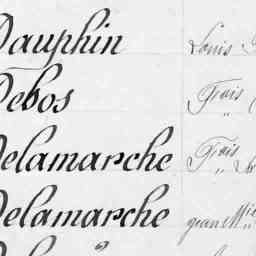 Dauphin Louis
Debos Frois
Delamarche Frois
Delamarche